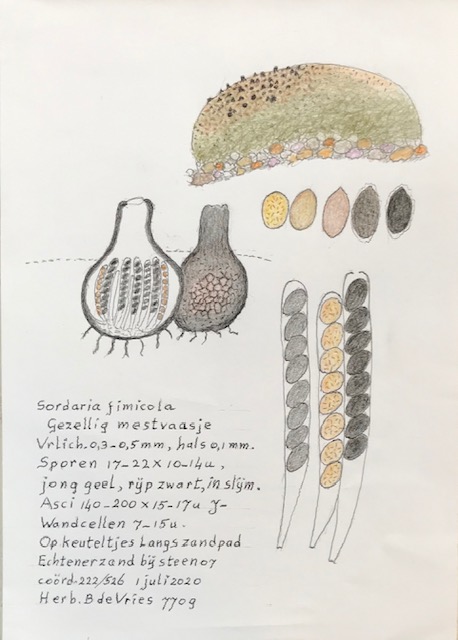 Sordaria fimicola
Gezellig mestvaasje
Vrlich. 0,3-0,5 mm, hals 0,1 mm.
Sporen 17-22 x 10-14 u,
jong geel, rijp zwart, in slijm.
Asci 140-200 x 15-17 u J-
Wandcellen 7-15 u.
Op keuteltjes langs zandpad
Echtenerzand bij steen 07
coörd. 222/526 1 juli 2020
Herb. B de Vries 7709